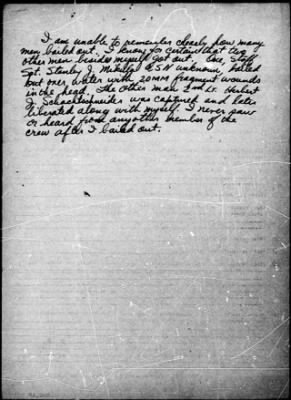 I am unable to remember clearly how many
men bailed out. I know for certain that two
other men besides myself got out. One, Staff
Sgt. Stanley J. ASN unknown, bailed
out over water with 20MM fragment wounds
in the head. The other man 2nd Lt. Herbert
J. was captured and later
liberated along with myself. I never saw
or heard from any other member of the
crew after I bailed out.